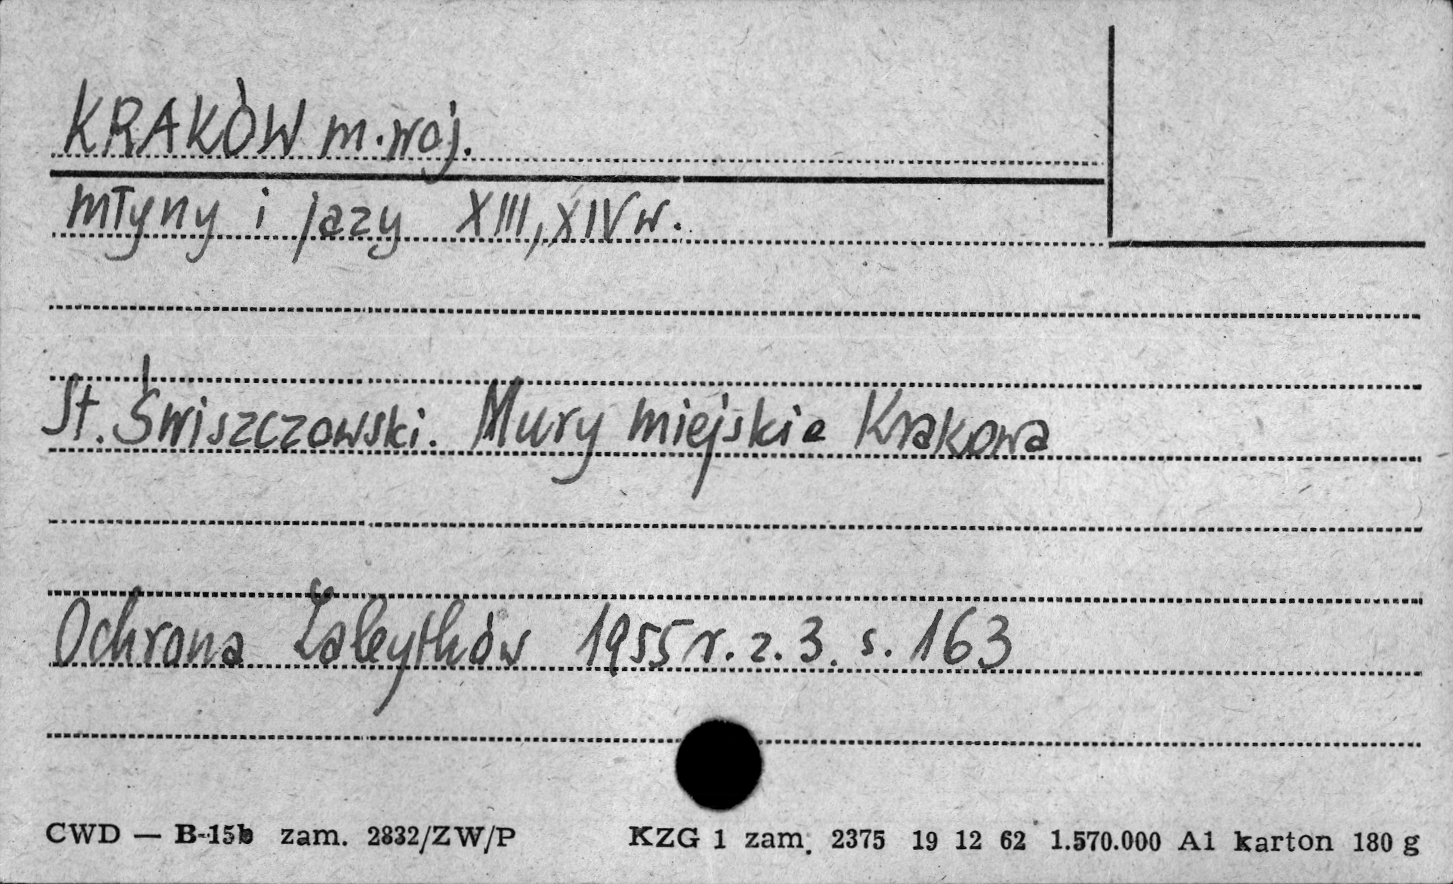 KRAKÓW m. woj.
młyny i jazy XIII, XIV w.
St. Świszczowski. Mury miejskie Krakowa
Ochrona Zabytków 1955 r. z. 3. s. 163
CWD — B-15b zam. 2832/ZW/P KZG 1 zam. 2375 19 12 62 1.570.000 A1 karton 180 g